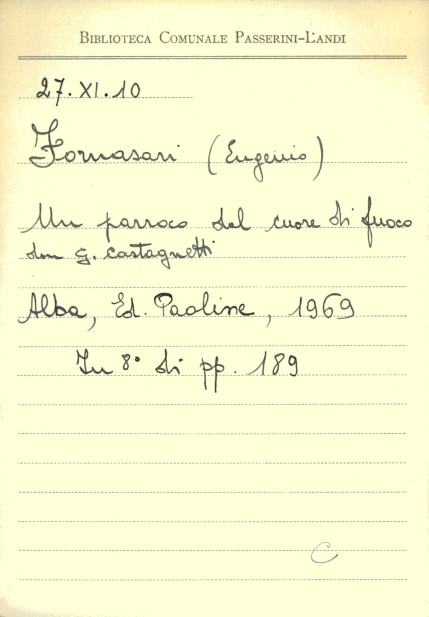 BIBLIOTECA COMUNALE PASSERINI-LANDI
27.XI.10
Fornasari (Eugenio)
Un parroco dal cuore di fuoco
don G. Castagnetti
Alba, Ed. Paoline, 1969
In 8° di pp. 189
C